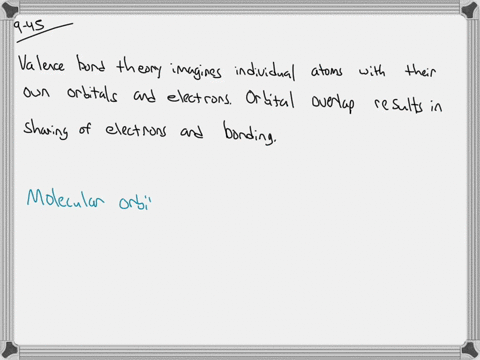 9-45
Valence bond theory imagines individual atoms with their
own orbitals and electrons. Orbital overlap results in
sharing of electrons and bonding.
Molecular orbi